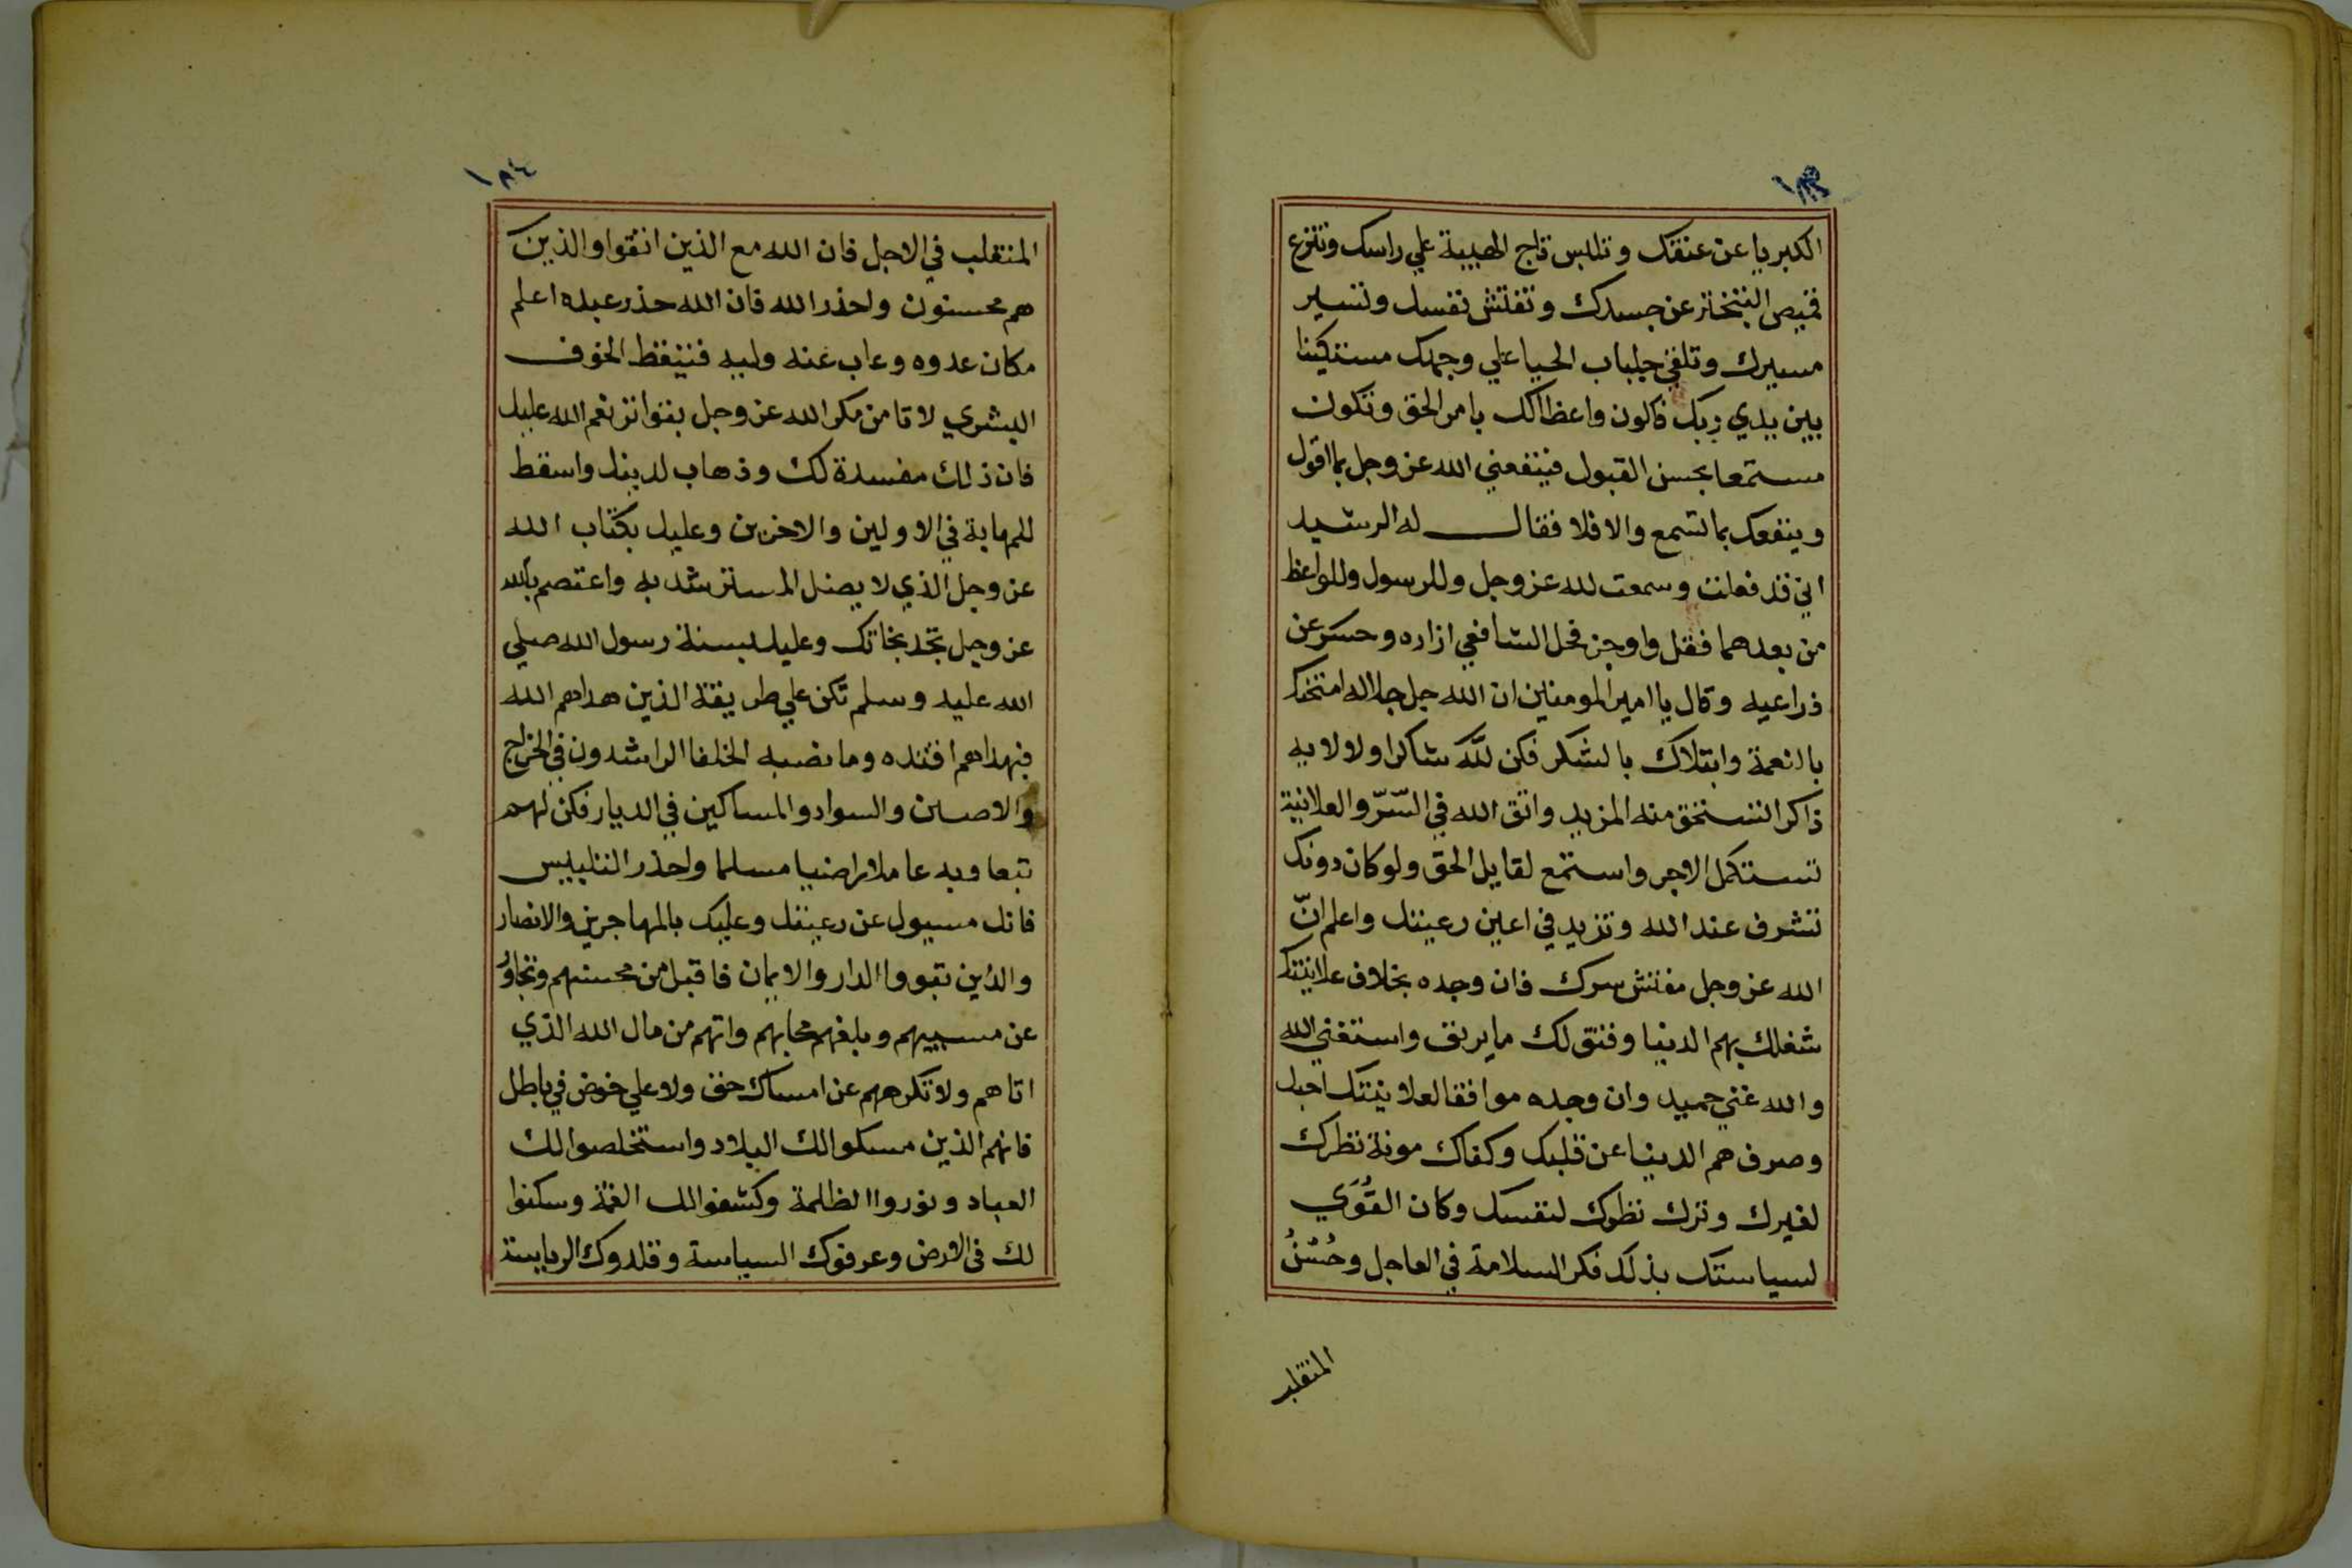 ١٨٣
الكبريا عن عنقك وتلبس تاج الهيبة علي راسك وتنزع
قميص التبختر عن جسدك وتفتش نفسك وتسير
مسيرك وتلقي جلباب الحيا علي وجهك مستكينا
بين يدي ربك فاكون واعظا لك بامر الحق وتكون
مستمعا بحسن القبول فينفعني الله عز وجل بما اقول
وينفعك بما تسمع والا فلا فقال له الرشيد
اني قد فعلت وسمعت لله عز وجل وللرسول وللواعظ
من بعدهما فقل واوجز فحل الشافعي ازاره وحسر عن
ذراعيه وقال يا امير المومنين ان الله جل جلاله امتحنك
بالنعمة وابتلاك بالشكر فكن لله شاكرا ولالايه
ذاكرا تستحق منه المزيد واتق الله في السّرّ والعلانية
تستكمل الاجر واستمع لقايل الحق ولو كان دونك
تشرف عند الله وتزيد في اعين رعيتك واعلم انّ
الله عز وجل مفتش سرك فان وجده بخلاف علانيتك
شغلك بهم الدنيا وفتق لك ما يرتق واستغني الله
والله غني حميد وان وجده موافقا لعلانيتك احبك
وصرف هم الدنيا عن قلبك وكفاك مونة نظرك
لغيرك وترك نظرك لنفسك وكان القُوّي
لسياستك بذلك فكر السلامة في العاجل وحُسْنُ
المنقلب
١٨٤
المنقلب في الاجل فان الله مع الذين اتقوا والذين
هم محسنون واحذر الله فان الله حذر عبده اعلم
مكان عدوه وعاب عنه وليه فتيقظ الخوف
البشري لا تامن مكر الله عز وجل بتواتر نعم الله عليك
فان ذلك مفسدة لك وذهاب لدينك واسقط
للمهابة في الاولين والاخرين وعليك بكتاب الله
عز وجل الذي لا يضل المسترشد به واعتصم بالله
عز وجل تجد نجاتك وعليك بسنة رسول الله صلي
الله عليه وسلم تكن علي طريقة الذين هداهم الله
فبهداهم اقتده وما نصبه الخلفا الراشدون في الخراج
والارضين والسواد والمساكين في الديار فكن لهم
تبعا وبه عاملا راضيا مسلما واحذر التلبيس
فانك مسيول عن رعيتك وعليك بالمهاجرين والانصار
والذين تبووا الدار والايمان فاقبل من محسنهم وتجاوز
عن مسييهم وبلغهم محابهم واتهم من مال الله الذي
اتاهم ولا تكرههم عن امساك حق ولا علي خوض في باطل
فانهم الذين مسكوا لك البلاد واستخلصوا لك
العباد ونوروا الظلمة وكشفوا لك الغمة وسكنوا
لك في الارض وعرفوك السياسة وقلدوك الرياسة